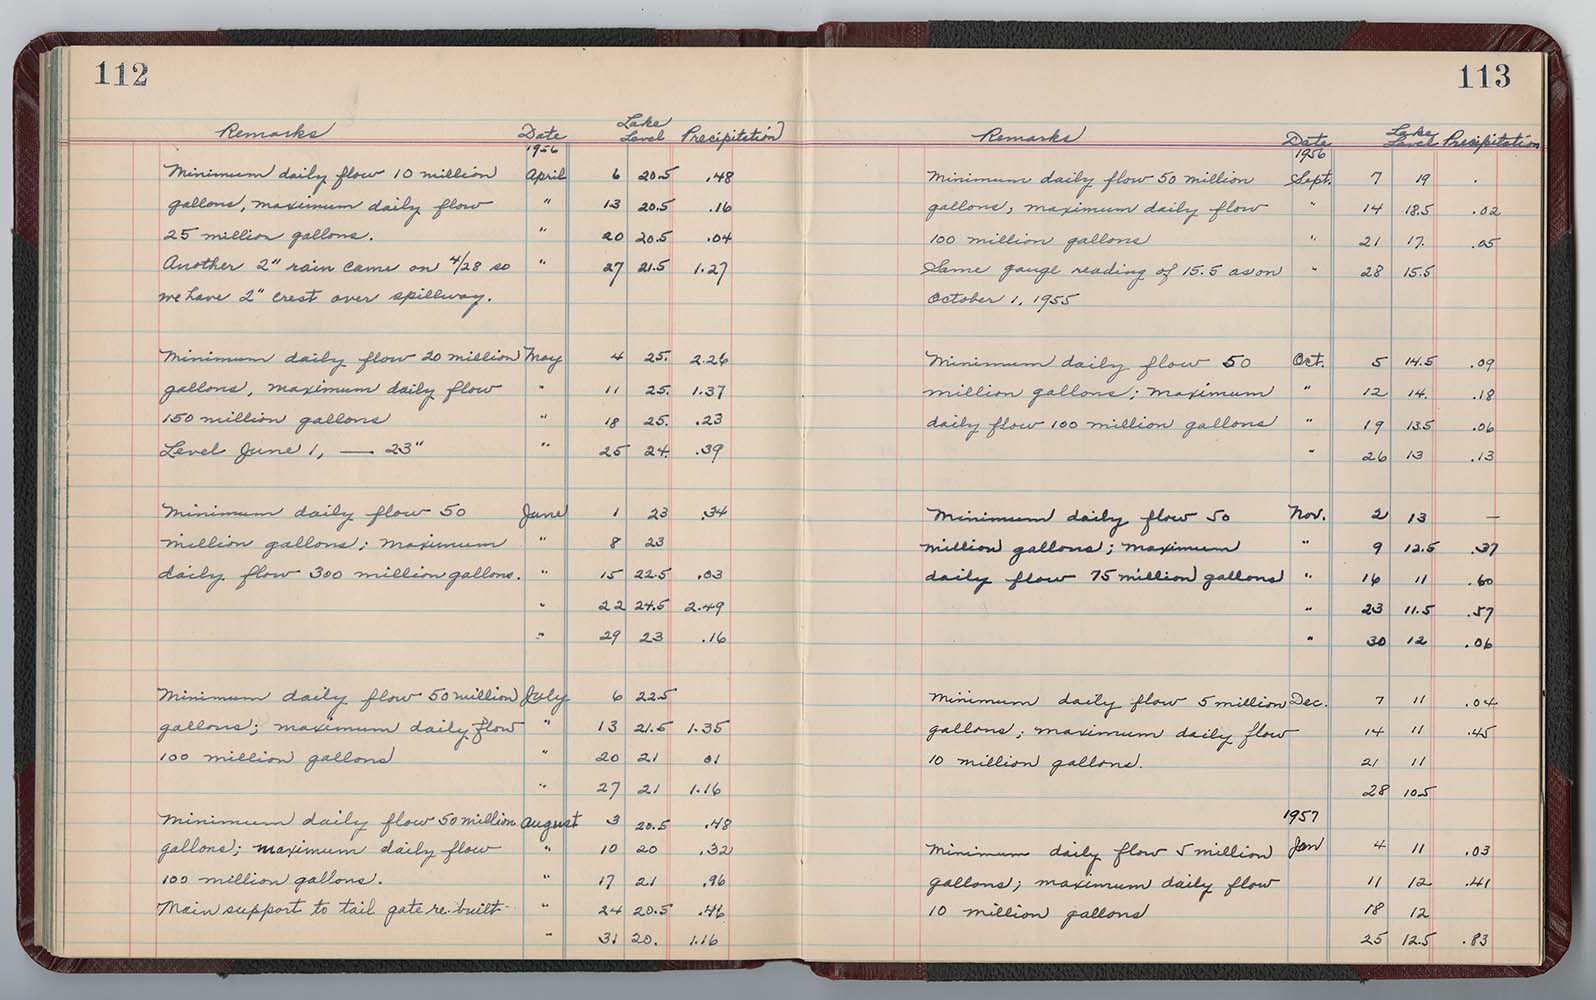 112
Remarks Date Lake Level Precipitation
1956
Minimum daily flow 10 million April 6 20.5 .48
gallons, maximum daily flow " 13 20.5 .16
25 million gallons. " 20 20.5 .04
Another 2" rain came on 4/28 so " 27 21.5 1.27
we have 2" crest over spillway.
Minimum daily flow 20 million May 4 25. 2.26
gallons, maximum daily flow " 11 25. 1.37
150 million gallons " 18 25. .23
Level June 1, — 23" " 25 24. .39
Minimum daily flow 50 June 1 23 .34
million gallons; maximum " 8 23
daily flow 300 million gallons. " 15 22.5 .03
" 22 24.5 2.49
" 29 23 .16
Minimum daily flow 50 million July 6 22.5
gallons; maximum daily flow " 13 21.5 1.35
100 million gallons " 20 21 01
" 27 21 1.16
Minimum daily flow 50 million August 3 20.5 .48
gallons; maximum daily flow " 10 20 .32
100 million gallons. " 17 21 .96
Main support to tail gate re-built " 24 20.5 .46
" 31 20. 1.16
113
Remarks Date Lake Level Precipitation
1956
Minimum daily flow 50 million Sept. 7 19 .
gallons; maximum daily flow " 14 18.5 .02
100 million gallons " 21 17. .05
Same gauge reading of 15.5 as on " 28 15.5
October 1, 1955
Minimum daily flow 50 Oct. 5 14.5 .09
million gallons; maximum " 12 14. .18
daily flow 100 million gallons " 19 13.5 .06
" 26 13 .13
Minimum daily flow 50 Nov. 2 13 —
million gallons; maximum " 9 12.5 .37
daily flow 75 million gallons " 16 11 .60
" 23 11.5 .57
" 30 12 .06
Minimum daily flow 5 million Dec. 7 11 .04
gallons; maximum daily flow 14 11 .45
10 million gallons. 21 11
28 10.5
1957
Minimum daily flow 5 million Jan 4 11 .03
gallons; maximum daily flow 11 12 .41
10 million gallons 18 12
25 12.5 .83